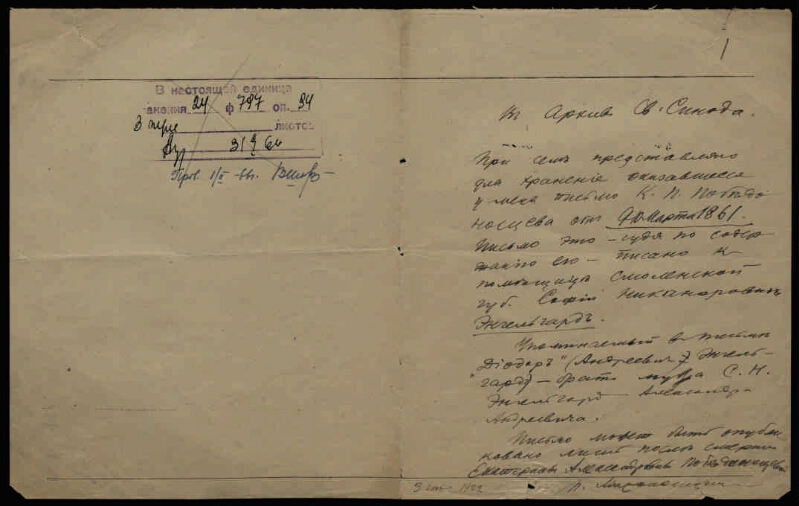 1
В настоящей единице
24 ф 797 оп. 94
листов
31 64
Пров.
Въ Архив Св. Синода.
При семъ представляю
для хранения оказавшееся
у меня письмо К. П. Победо
носцева отъ Марта 1861.
Письмо это – судя по содер
жанію его – писано к
помещице Смоленской
губ. Софіи Никаноровнѣ
Энгельгардъ.
Упоминаемый в письме
"Діодоръ" (Андреевич Энгель-
гардъ) – братъ мужа С. Н.
Энгельгардъ Александра
Андреевича.
Письмо может быть опубли
ковано лишь после смерти
Екатерины Александровны Победоносцевой